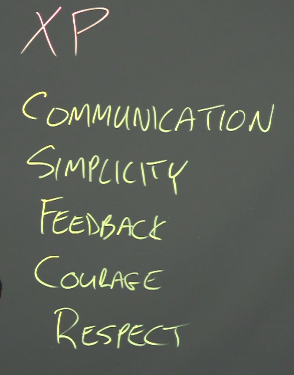 XP
COMMUNICATION
SIMPLICITY
FEEDBACK
COURAGE
RESPECT